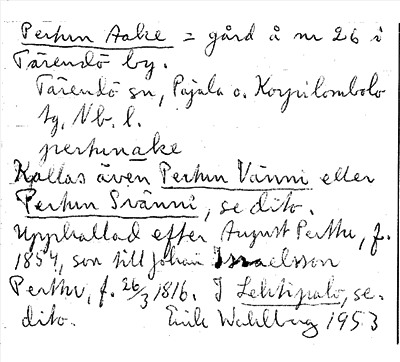 Perttun Aake = gård å nr 26 i
Tärendö by.
Tärendö sn, Pajala o. Korpilombolo
tg, Nb. l.
perttunake
Kallas även Perttun Vänni eller
Perttun Svänni, se dito.
Uppkallad efter August Perttu, f.
1854, son till Johan Israelsson
Perttu, f. 26/3 1816. J Lehtipalo, se.
dito. Emile Wahlberg 1953